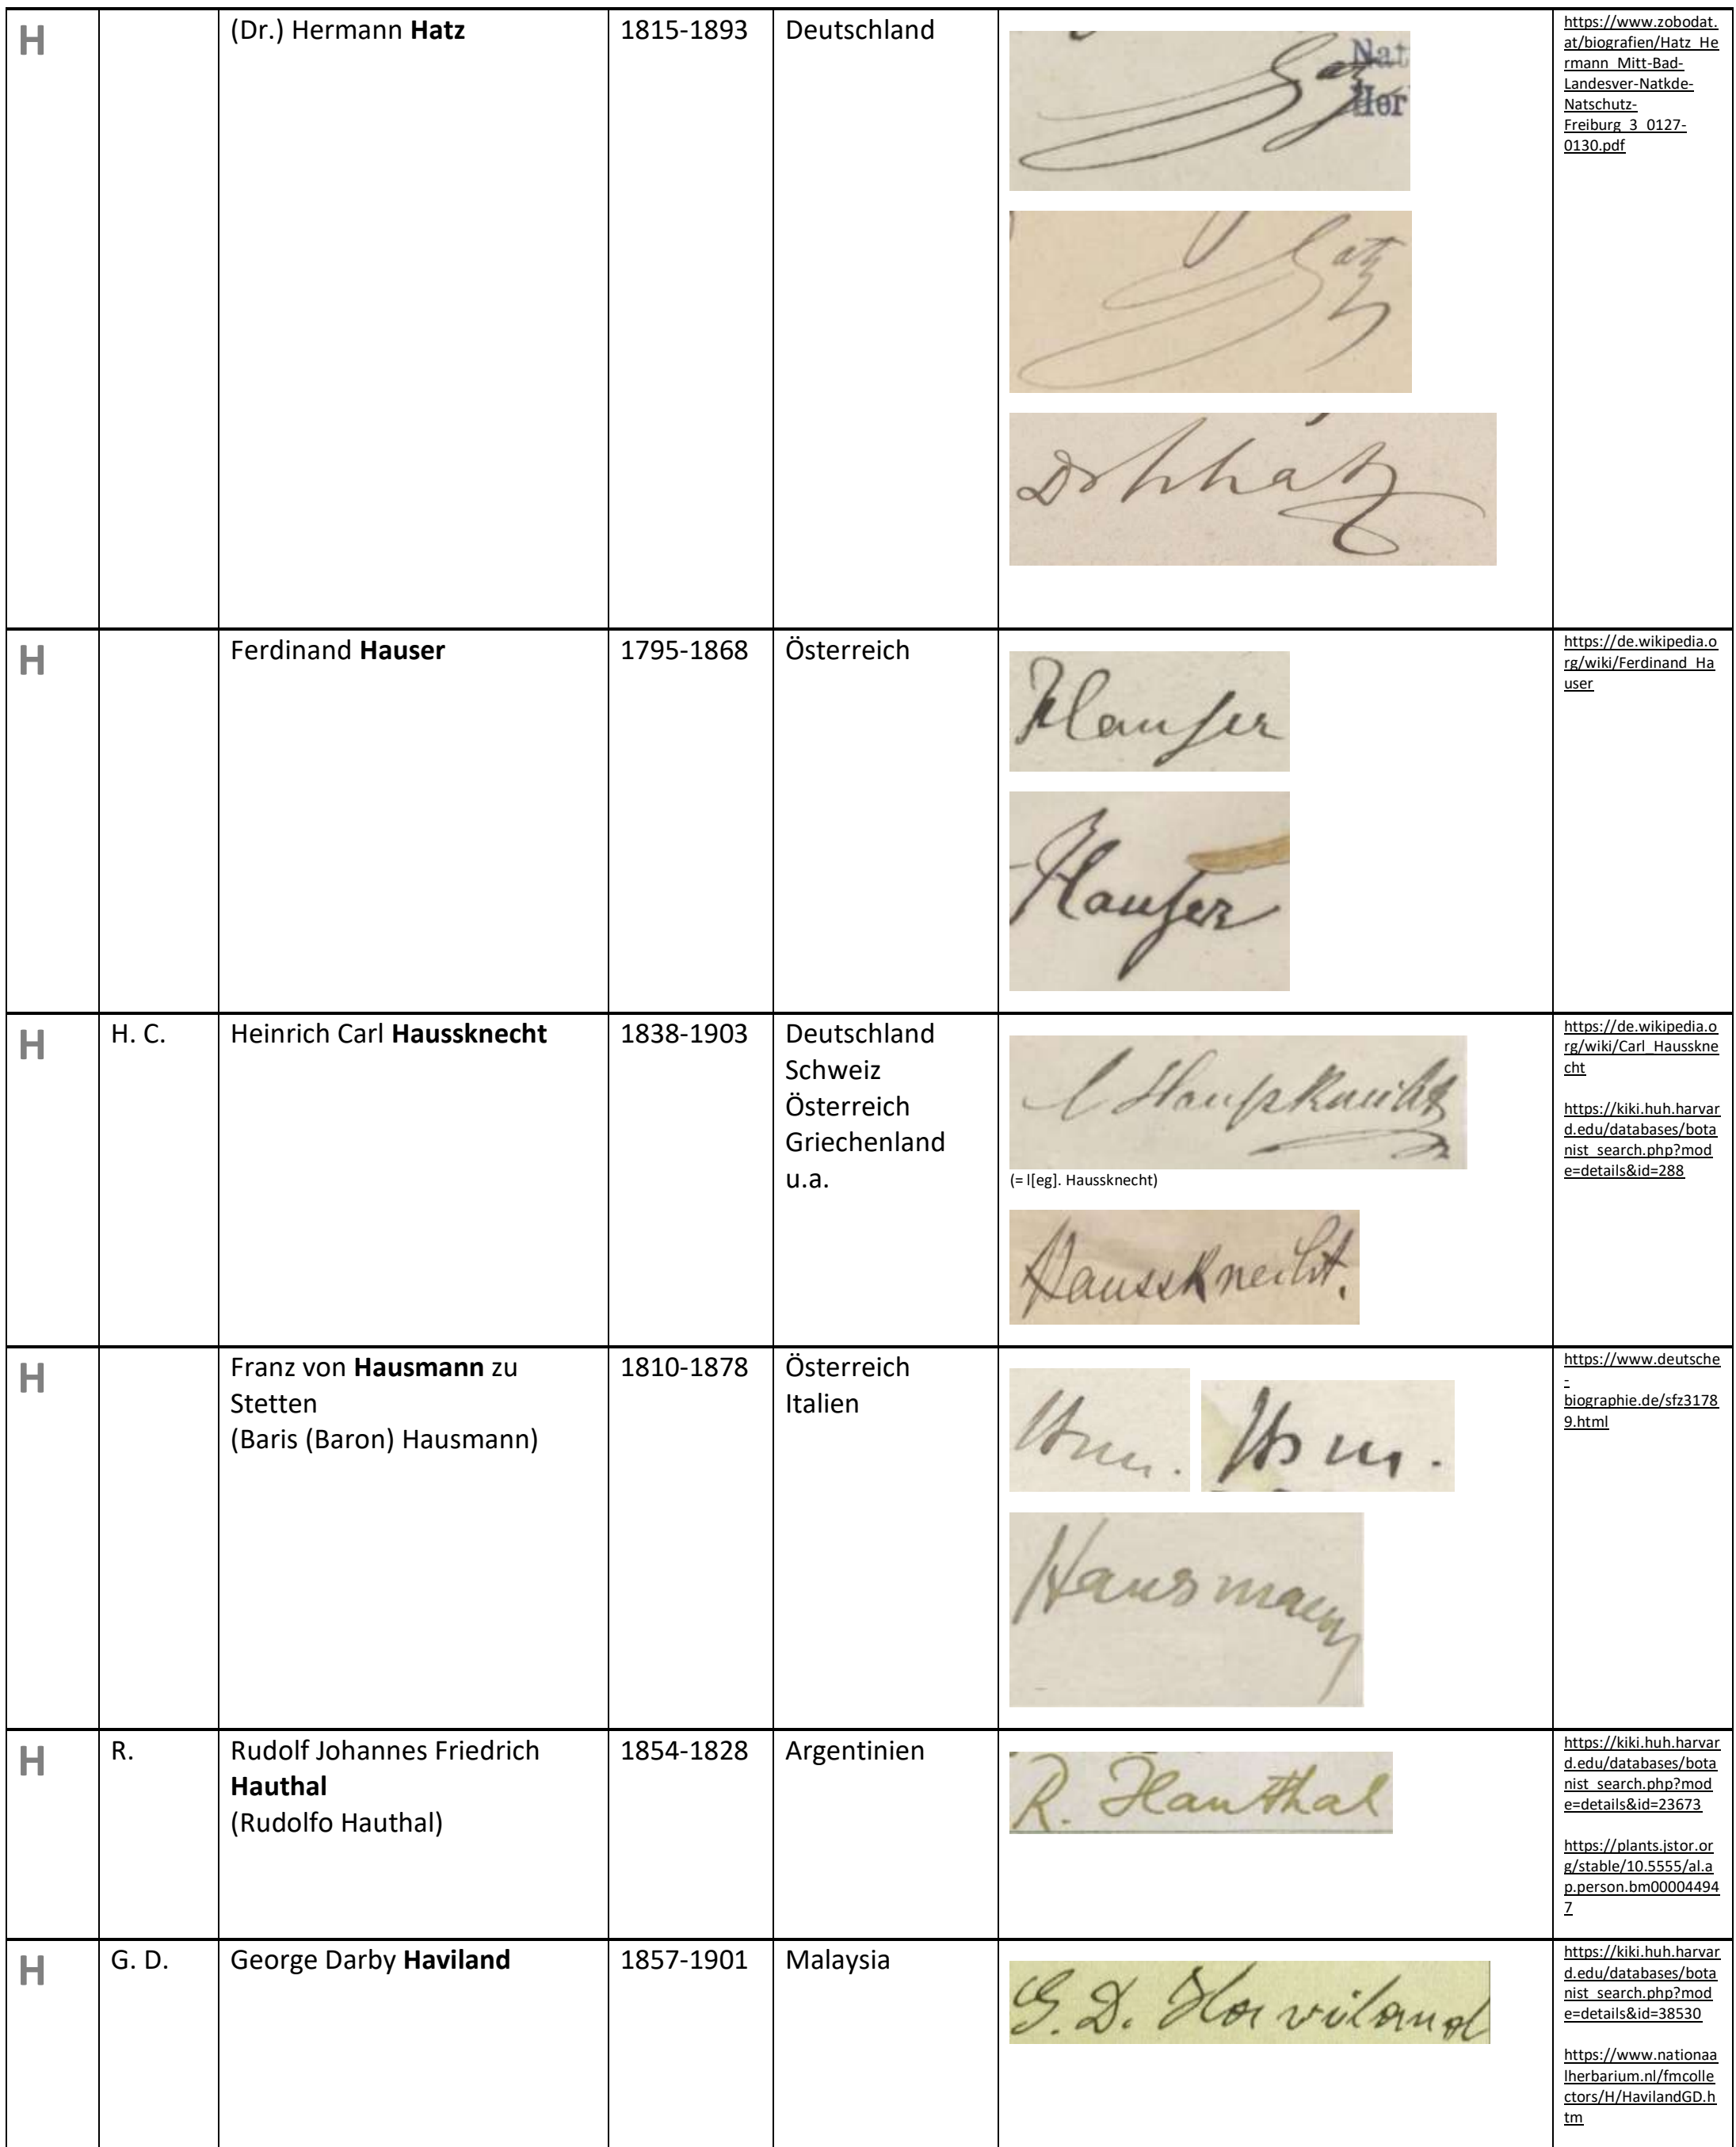 H (Dr.) Hermann Hatz 1815-1893 Deutschland
Hatz
Nat
Her
Hatz
Dr h hatz
https://www.zobodat.
at/biografien/Hatz_He
rmann_Mitt-Bad-
Landesver-Natkde-
Natschutz-
Freiburg_3_0127-
0130.pdf
H Ferdinand Hauser 1795-1868 Österreich
Hauser
Hauser
https://de.wikipedia.o
rg/wiki/Ferdinand_Ha
user
H H. C. Heinrich Carl Haussknecht 1838-1903 Deutschland
Schweiz
Österreich
Griechenland
u.a.
l Haußknecht
(= l[eg]. Haussknecht)
Haussknecht.
https://de.wikipedia.o
rg/wiki/Carl_Hausskne
cht
https://kiki.huh.harvar
d.edu/databases/bota
nist_search.php?mod
e=details&id=288
H Franz von Hausmann zu
Stetten
(Baris (Baron) Hausmann)
1810-1878 Österreich
Italien
Hsm. Hsm.
Hausmann
https://www.deutsche
-
biographie.de/sfz3178
9.html
H R. Rudolf Johannes Friedrich
Hauthal
(Rudolfo Hauthal)
1854-1828 Argentinien
R. Hauthal
https://kiki.huh.harvar
d.edu/databases/bota
nist_search.php?mod
e=details&id=23673
https://plants.jstor.or
g/stable/10.5555/al.a
p.person.bm00004494
7
H G. D. George Darby Haviland 1857-1901 Malaysia
G. D. Haviland
https://kiki.huh.harvar
d.edu/databases/bota
nist_search.php?mod
e=details&id=38530
https://www.nationaa
lherbarium.nl/fmcolle
ctors/H/HavilandGD.h
tm